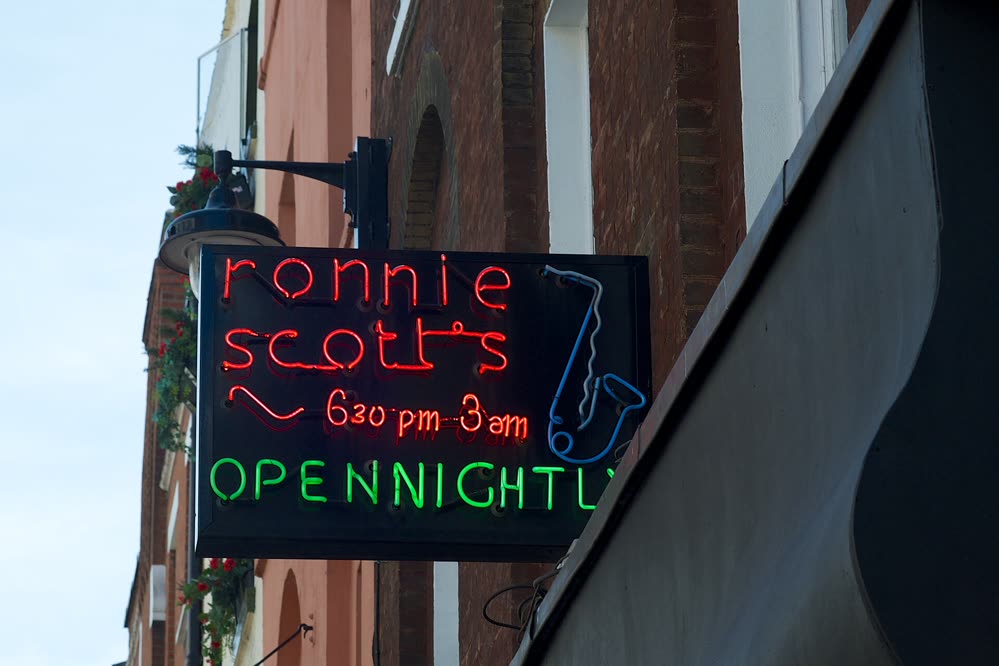 ronnie
scott's
~ 630 pm - 3 am
OPEN NIGHTLY